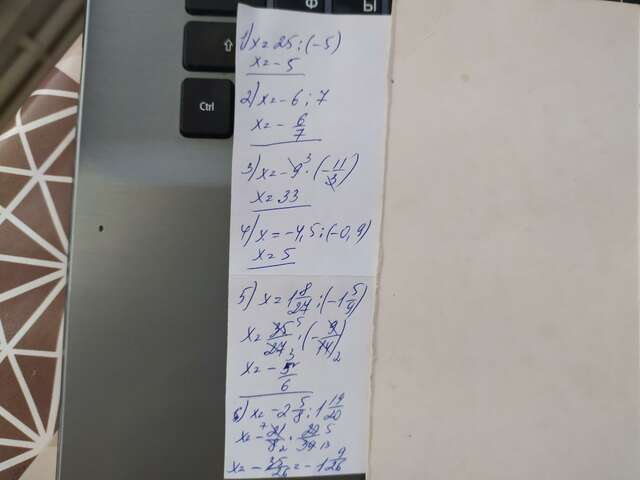 Ф
Ы
⇧
Ctrl
1) x = 25 : (-5)
x = -5
2) x = -6 : 7
x = - 6/7
3) x = -9 3 · (- 11/3)
x = 33
4) x = -4,5 : (-0,9)
x = 5
5) x = 1 8/27 : (-1 5/9)
x = 35 5/27 3 · (- 9/14 2)
x = - 5/6
6) x = -2 5/8 : 1 19/20
x = - 7 21/8 2 · 20 5/39 13
x = - 35/26 = -1 9/26